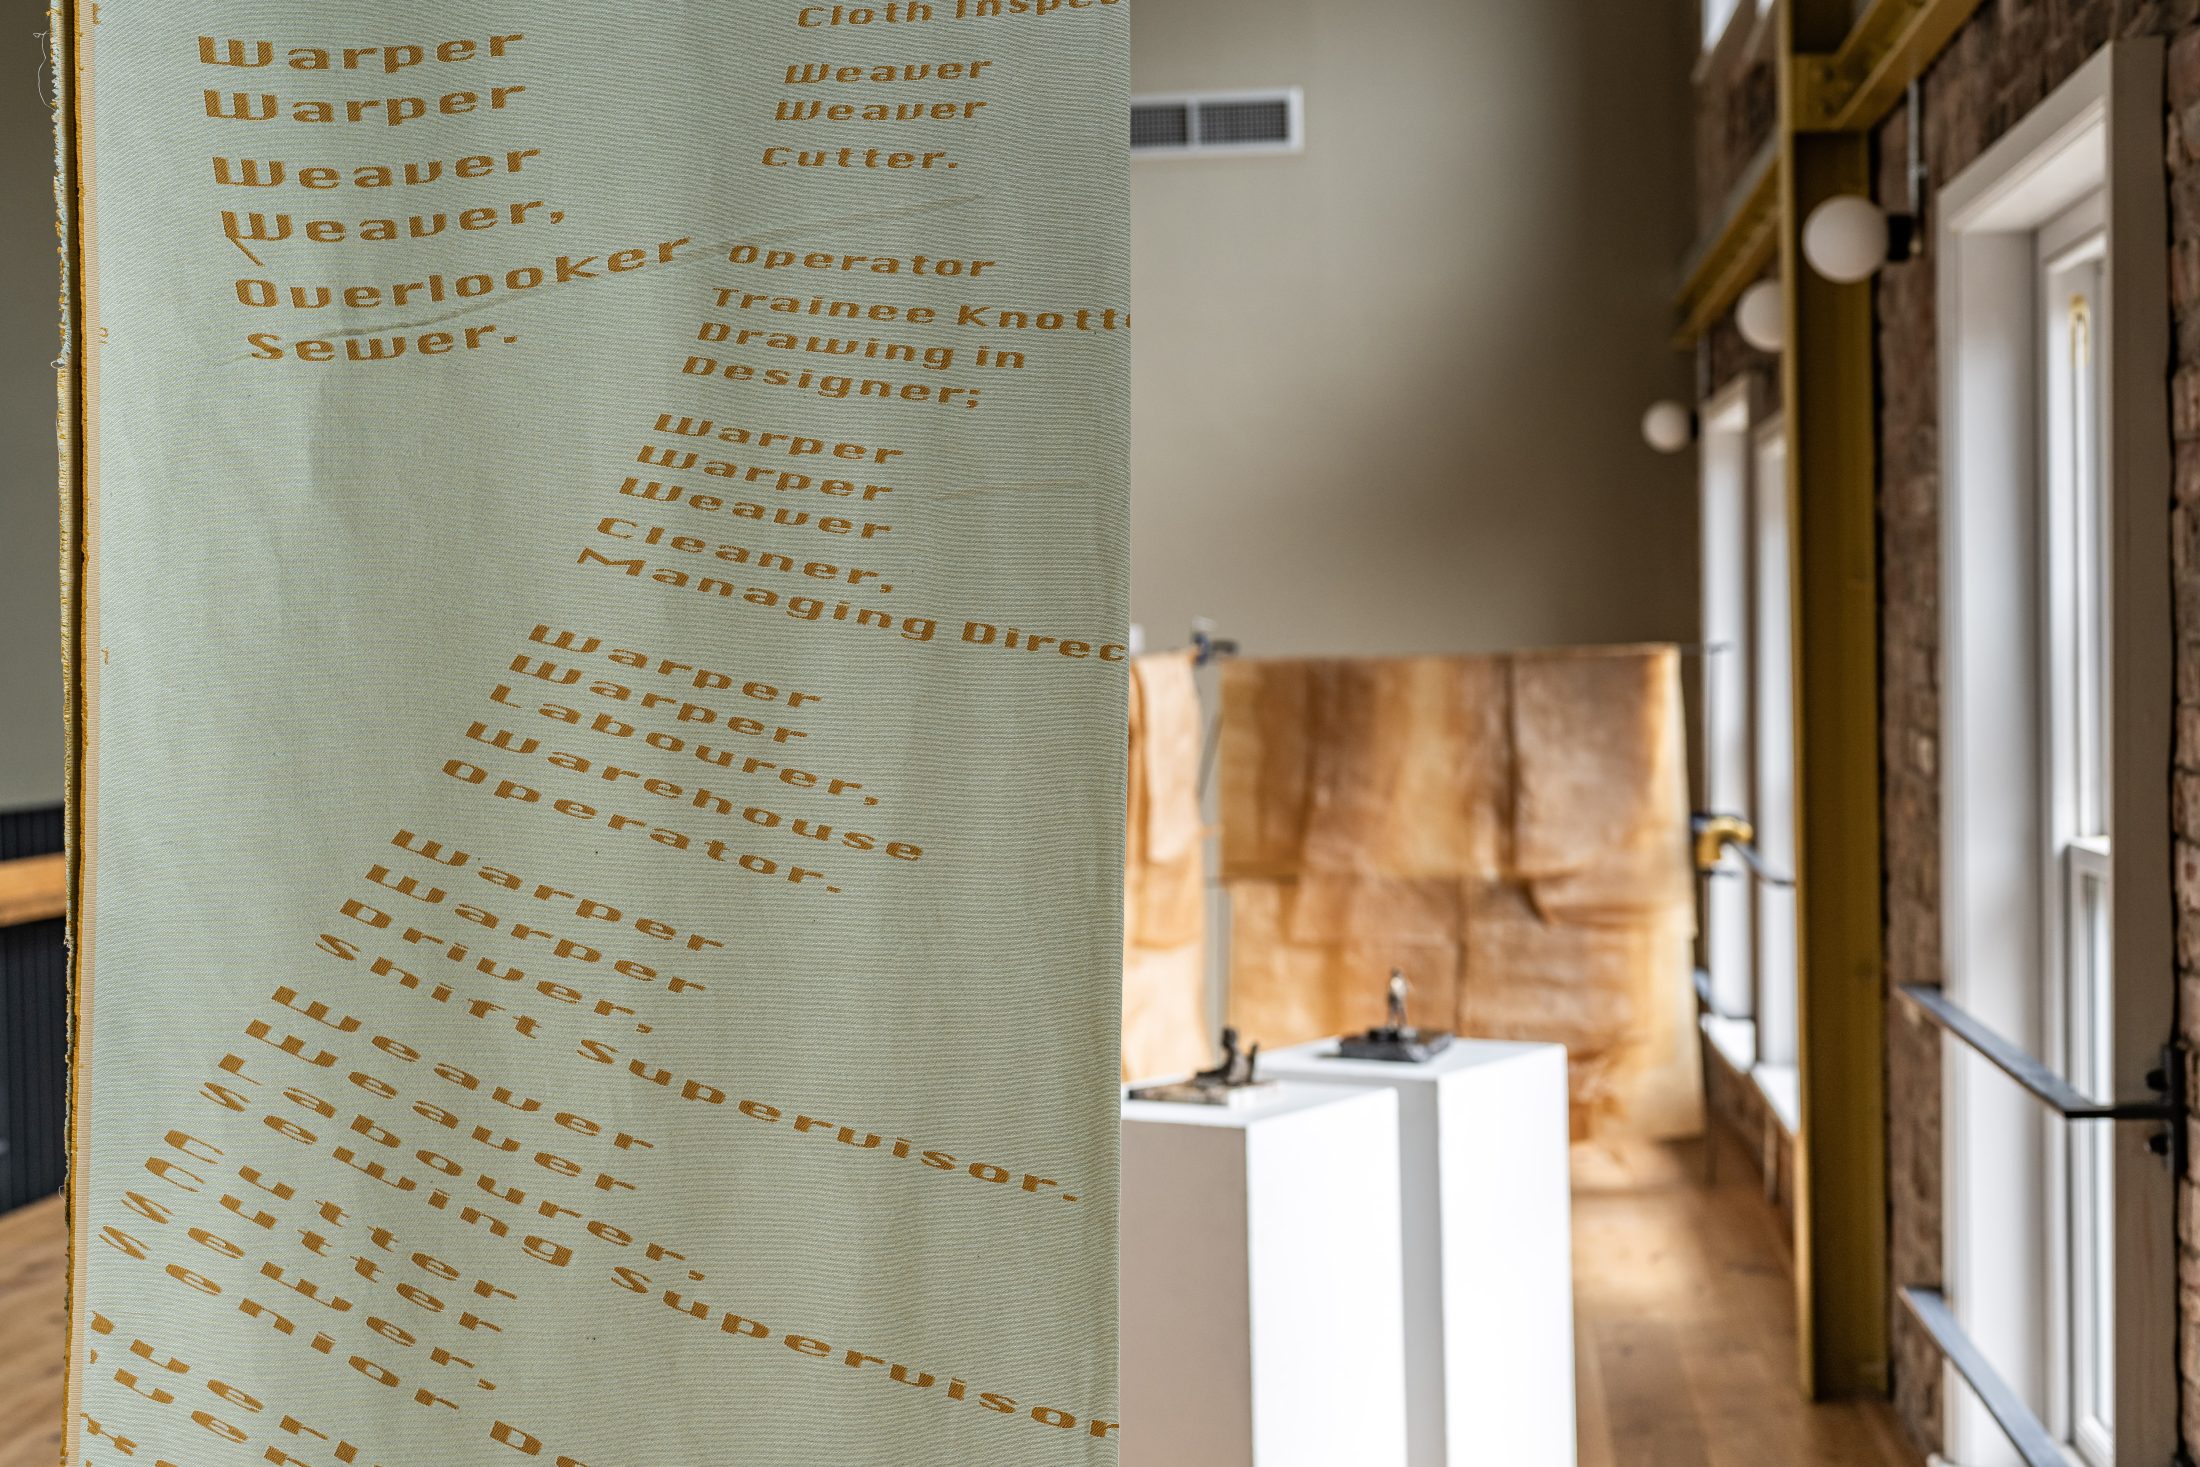 Warper
Warper
Weaver
Weaver,
Overlooker
Sewer.
Cloth
Weaver
Weaver
Cutter.
Operator
Trainee
Drawing in
Designer;
Warper
Warper
Weaver
Cleaner,
Managing
Warper
Warper
Labourer,
Warehouse
Operator.
Warper
Warper
Driver,
Shift Supervisor.
Weaver
Weaver
Labourer,
Sewing Supervisor
Cutter
Cutter
Sewer,
Senior